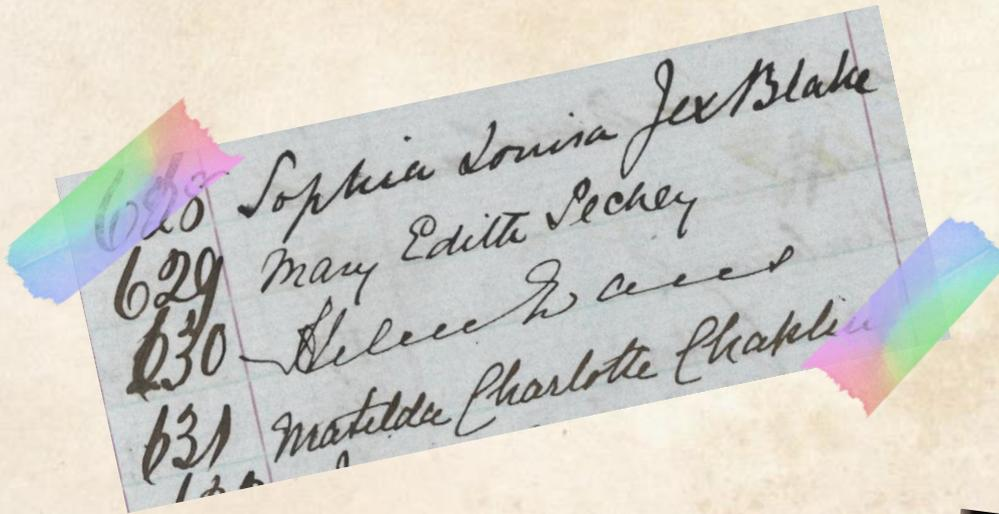 628 Sophia Louisa Jex Blake
629 Mary Edith Pechey
630 Helen Evans
631 Matilda Charlotte Chaplin